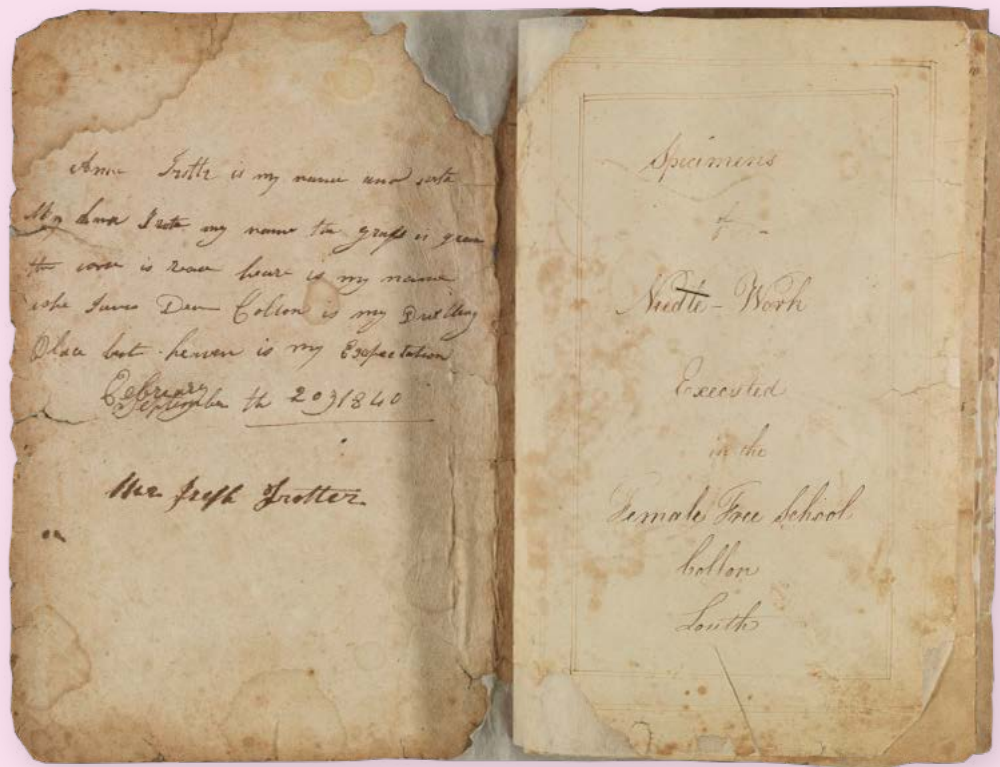 Anne Trotter is my name and
My name the grass is green
the is heare is my name
Collon is my Dwelling
Place but heaven is my Expectation
February
September th 20 1840
Mr Joseph Trotter
Specimens
of
Needle-Work
Executed
in the
Female Free School
Collon
Louth